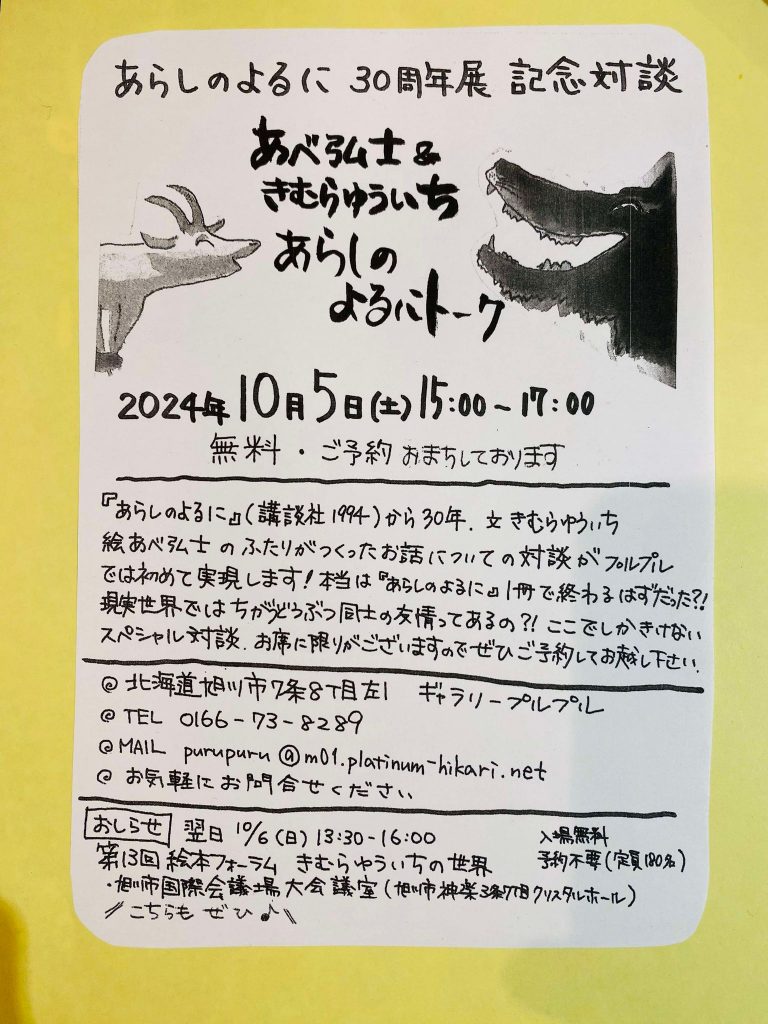 あらしのよるに 30周年展 記念対談
あべ弘士&
きむらゆういち
あらしの
よるにトーク
2024年10月5日(土)15:00~17:00
無料・ご予約おまちしております
『あらしのよるに』(講談社1994)から30年.文きむらゆういち
絵あべ弘士のふたりがつくったお話についての対談がプルプル
では初めて実現します!本当は『あらしのよるに』1冊で終わるはずだった?!
現実世界ではちがうどうぶつ同士の友情ってあるの?!ここでしかきけない
スペシャル対談.お席に限りがございますのでぜひご予約してお越し下さい.
@北海道旭川市7条8丁目左1 ギャラリープルプル
@TEL 0166-73-8289
@MAIL purupuru@m01.platinum-hikari.net
@お気軽にお問合せください
おしらせ 翌日10/6(日)13:30-16:00 入場無料
第13回絵本フォーラム きむらゆういちの世界 予約不要(定員180名)
・旭川市国際会議場大会議室(旭川市神楽3条7丁目クリスタルホール)
〃こちらもぜひ♪〃